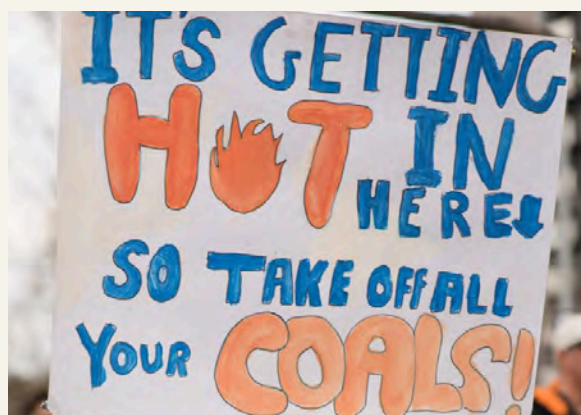 IT'S GETTING
HOT IN
HERE↓
SO TAKE OFF ALL
YOUR COALS!